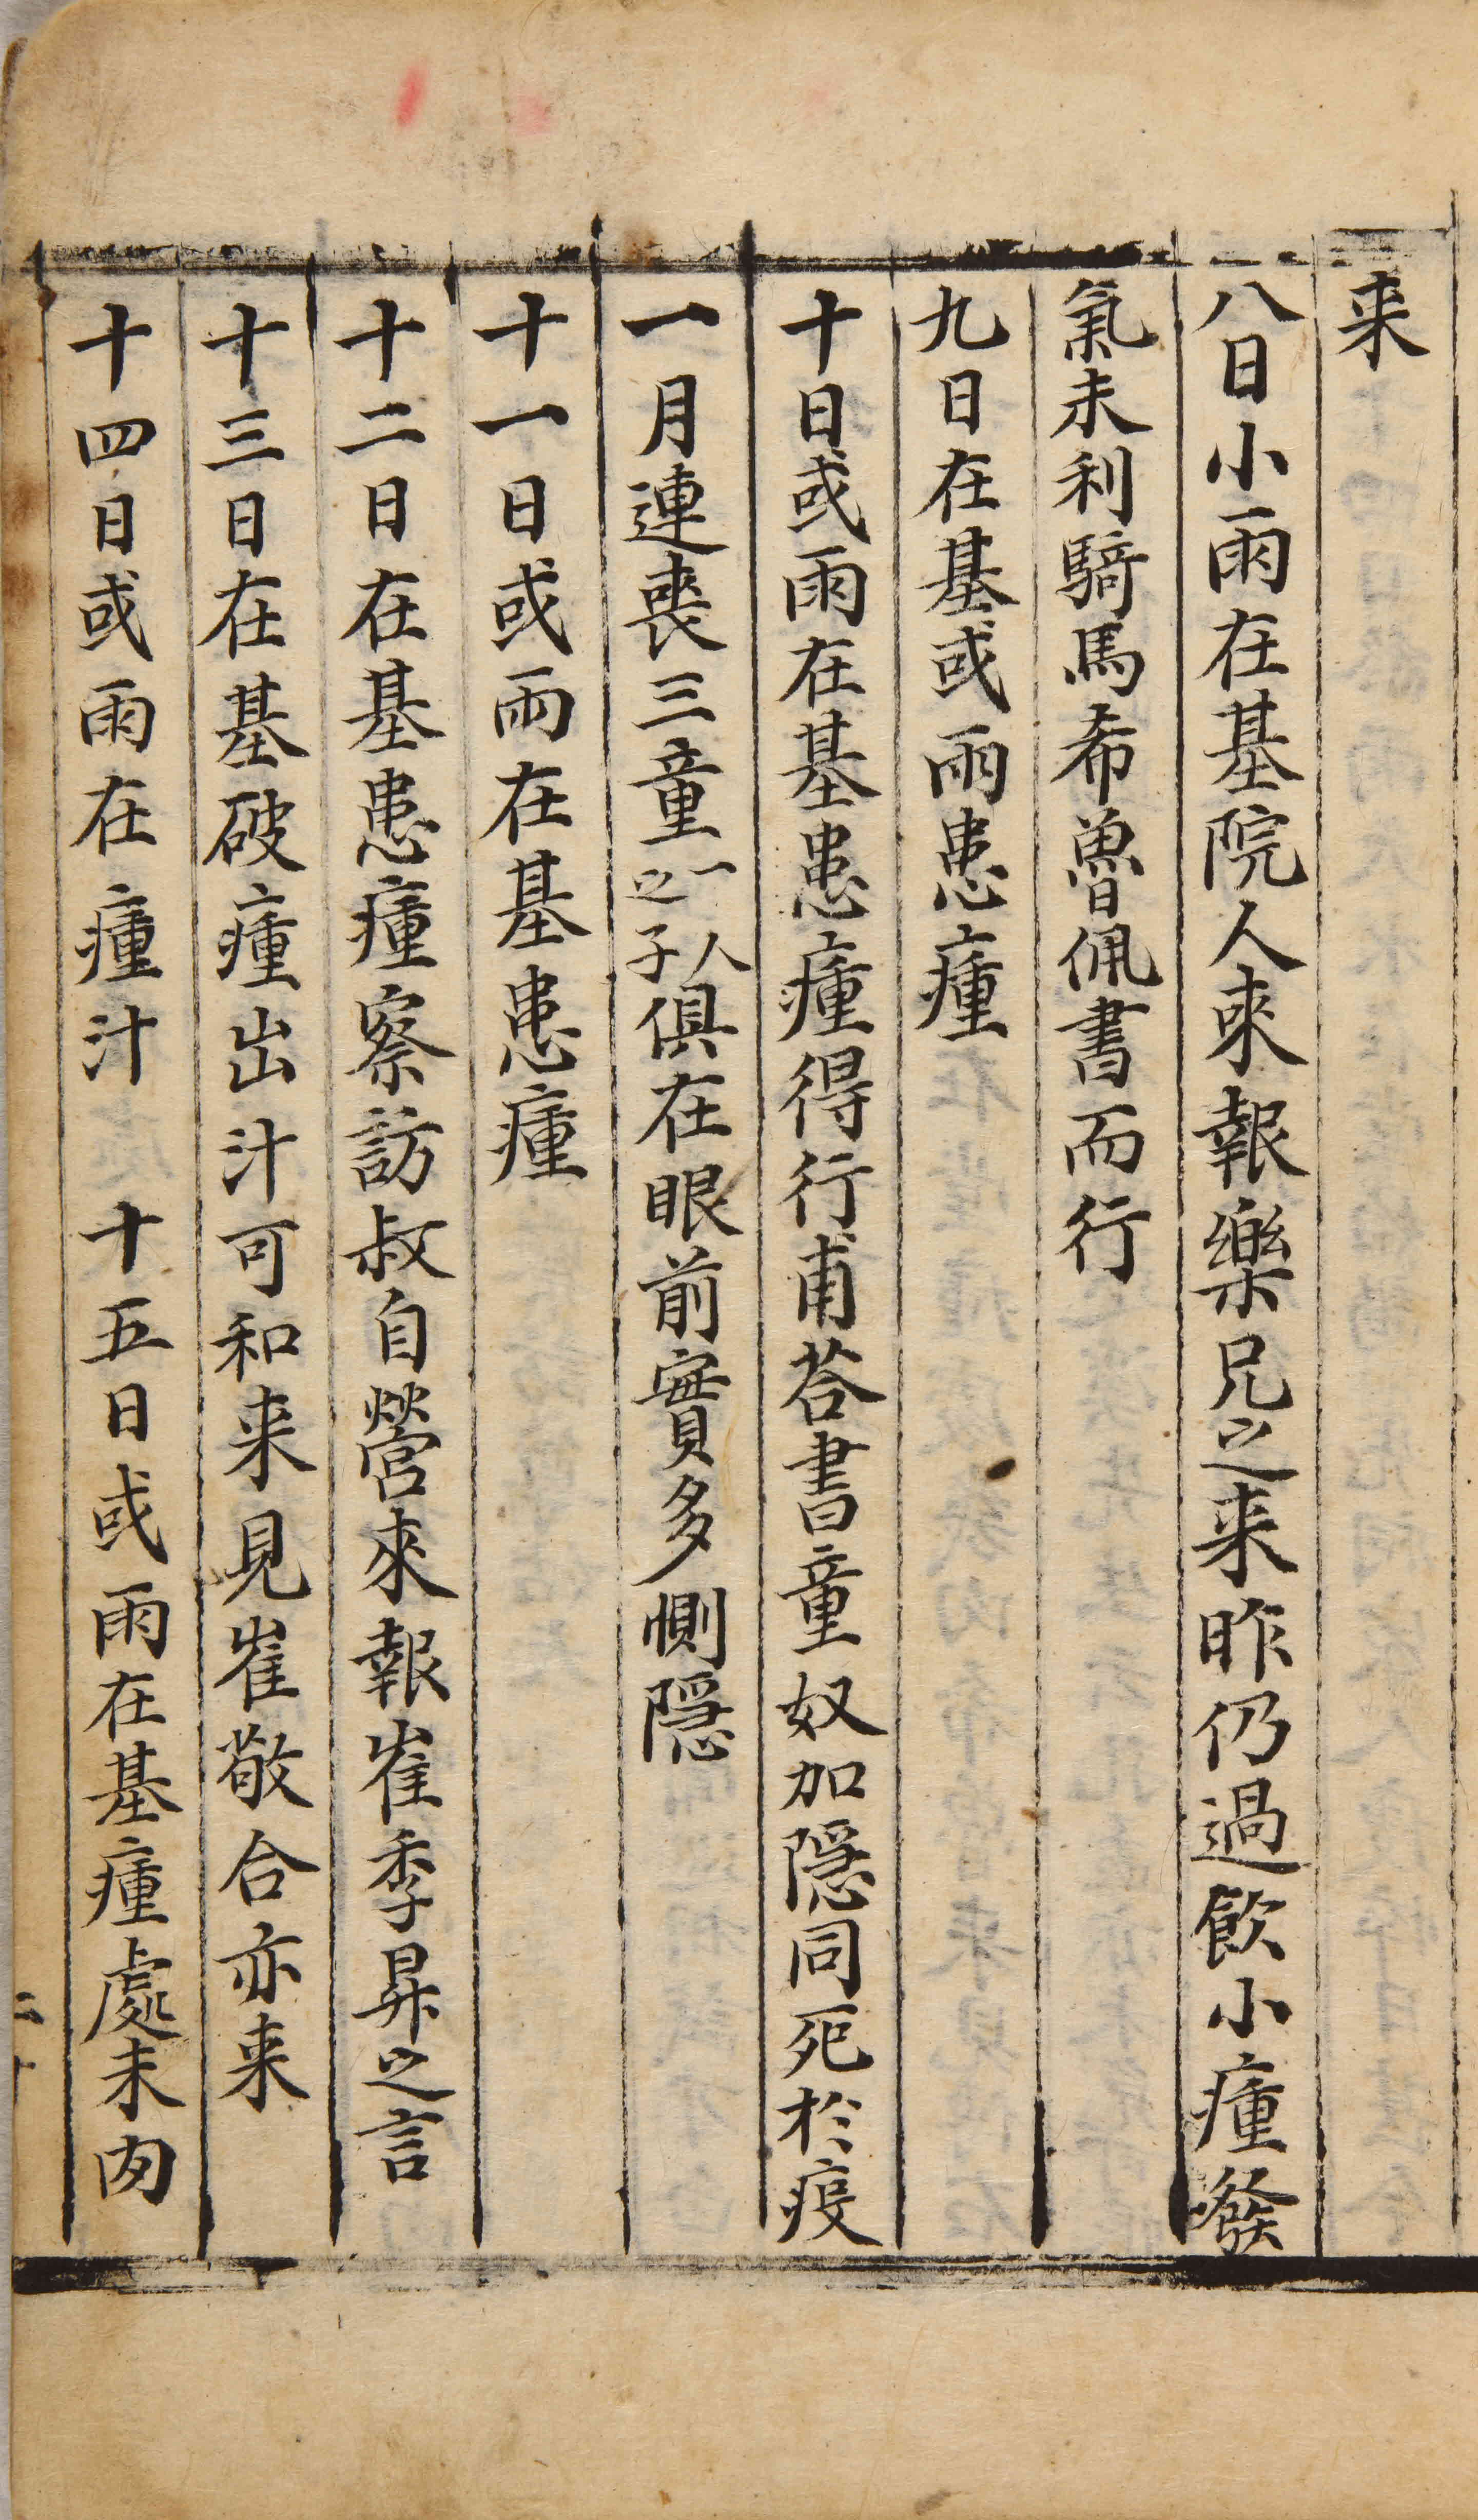 来
八日小雨在基院人来報樂兄之来昨仍過飲小瘇發
氣未利騎馬希魯佩書而行
九日在基或雨患瘇
十日或雨在基患瘇得行甫荅書童奴加隠同死於疫
一月連喪三童一人之子俱在眼前實多惻隠
十一日或雨在基患瘇
十二日在基患瘇察訪叔自營來報崔季昇之言
十三日在基破瘇出汁可和来見崔敬合亦来
十四日或雨在瘇汁　十五日或雨在基瘇處未肉
二十